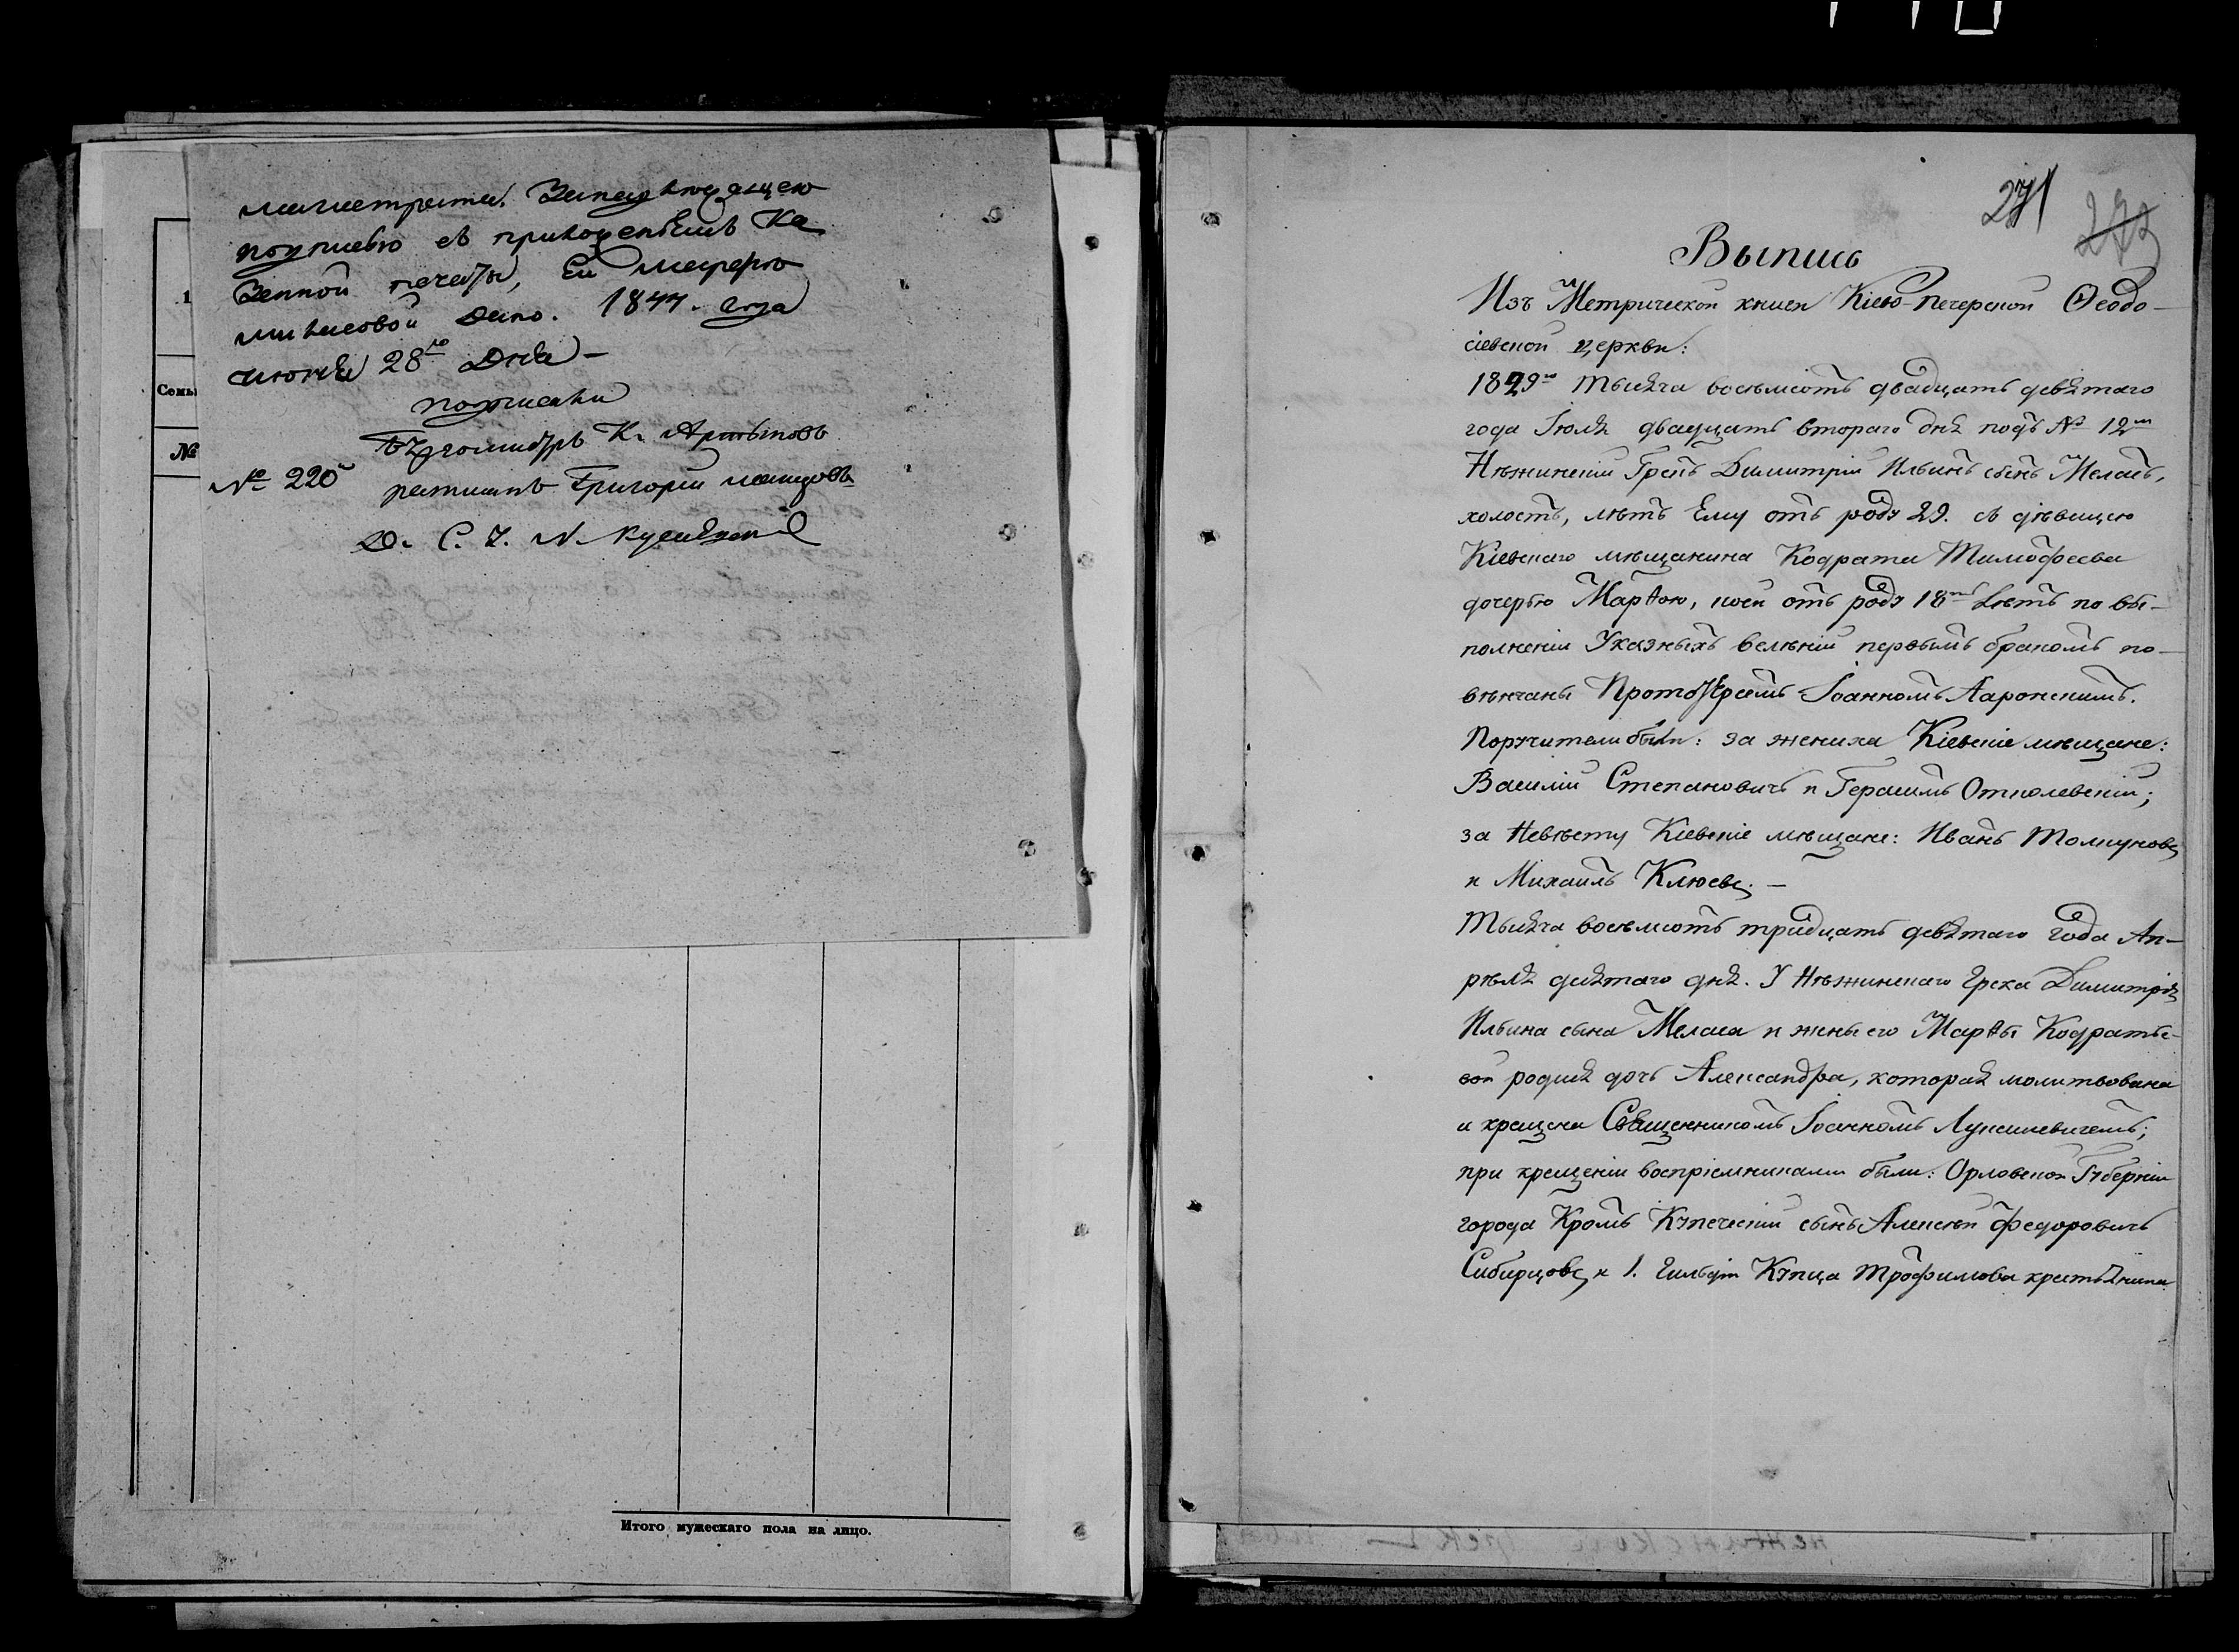 магистрата. За надлежащею
подписью съ приложеніемъ Ка
зенной печати,
1844. года
июня 28го Дня —
подписали
Бургомистръ К. Артыновъ
№ 220й ратманъ Григорій
1
Семьи
№
Итого мужескаго пола на лицо.
271
272
Выпись
Изъ Метрической книги Кіево-Печерской Ѳеодо-
сіевской церкви:
1829го Тысяча восемьсотъ двадцать девятаго
года Іюля двадцать втораго дня подъ № 12м
Нѣжинскій Грекъ Димитрій Ильинъ сынъ Меласъ,
холостъ, лѣтъ Ему отъ роду 29. съ дѣвицею
Кіевскаго мѣщанина Кодрата Тимофеева
дочерью Марѳою, коей отъ роду 18ть Лѣтъ по вы-
полненіи Указныхъ велѣній первымъ бракомъ по-
вѣнчаны Протоіереемъ Іоанномъ Ааронскимъ.
Поручители были: за жениха Кіевскіе мѣщане:
Василій Степановичъ и Герасимъ
за Невѣсту Кіевскіе мѣщане: Иванъ Толкуновъ
и Михаилъ Клюевъ. —
Тысяча восемьсотъ тридцать девятаго Года Ап-
рѣля девятаго дня. У Нѣжинскаго Грека Димитрія
Ильина сына Меласа и жены его Марѳы Кодратье-
вой родися дочь Александра, которая молитвована
и крещена Священникомъ Іоанномъ Лукашевичемъ;
при крещеніи воспріемниками были: Орловской Губерніи
города Кромъ Купеческій сынъ Алексѣй Федоровичъ
Сибирцовъ и 1. Гильдіи Купца Трофимова крестьянина